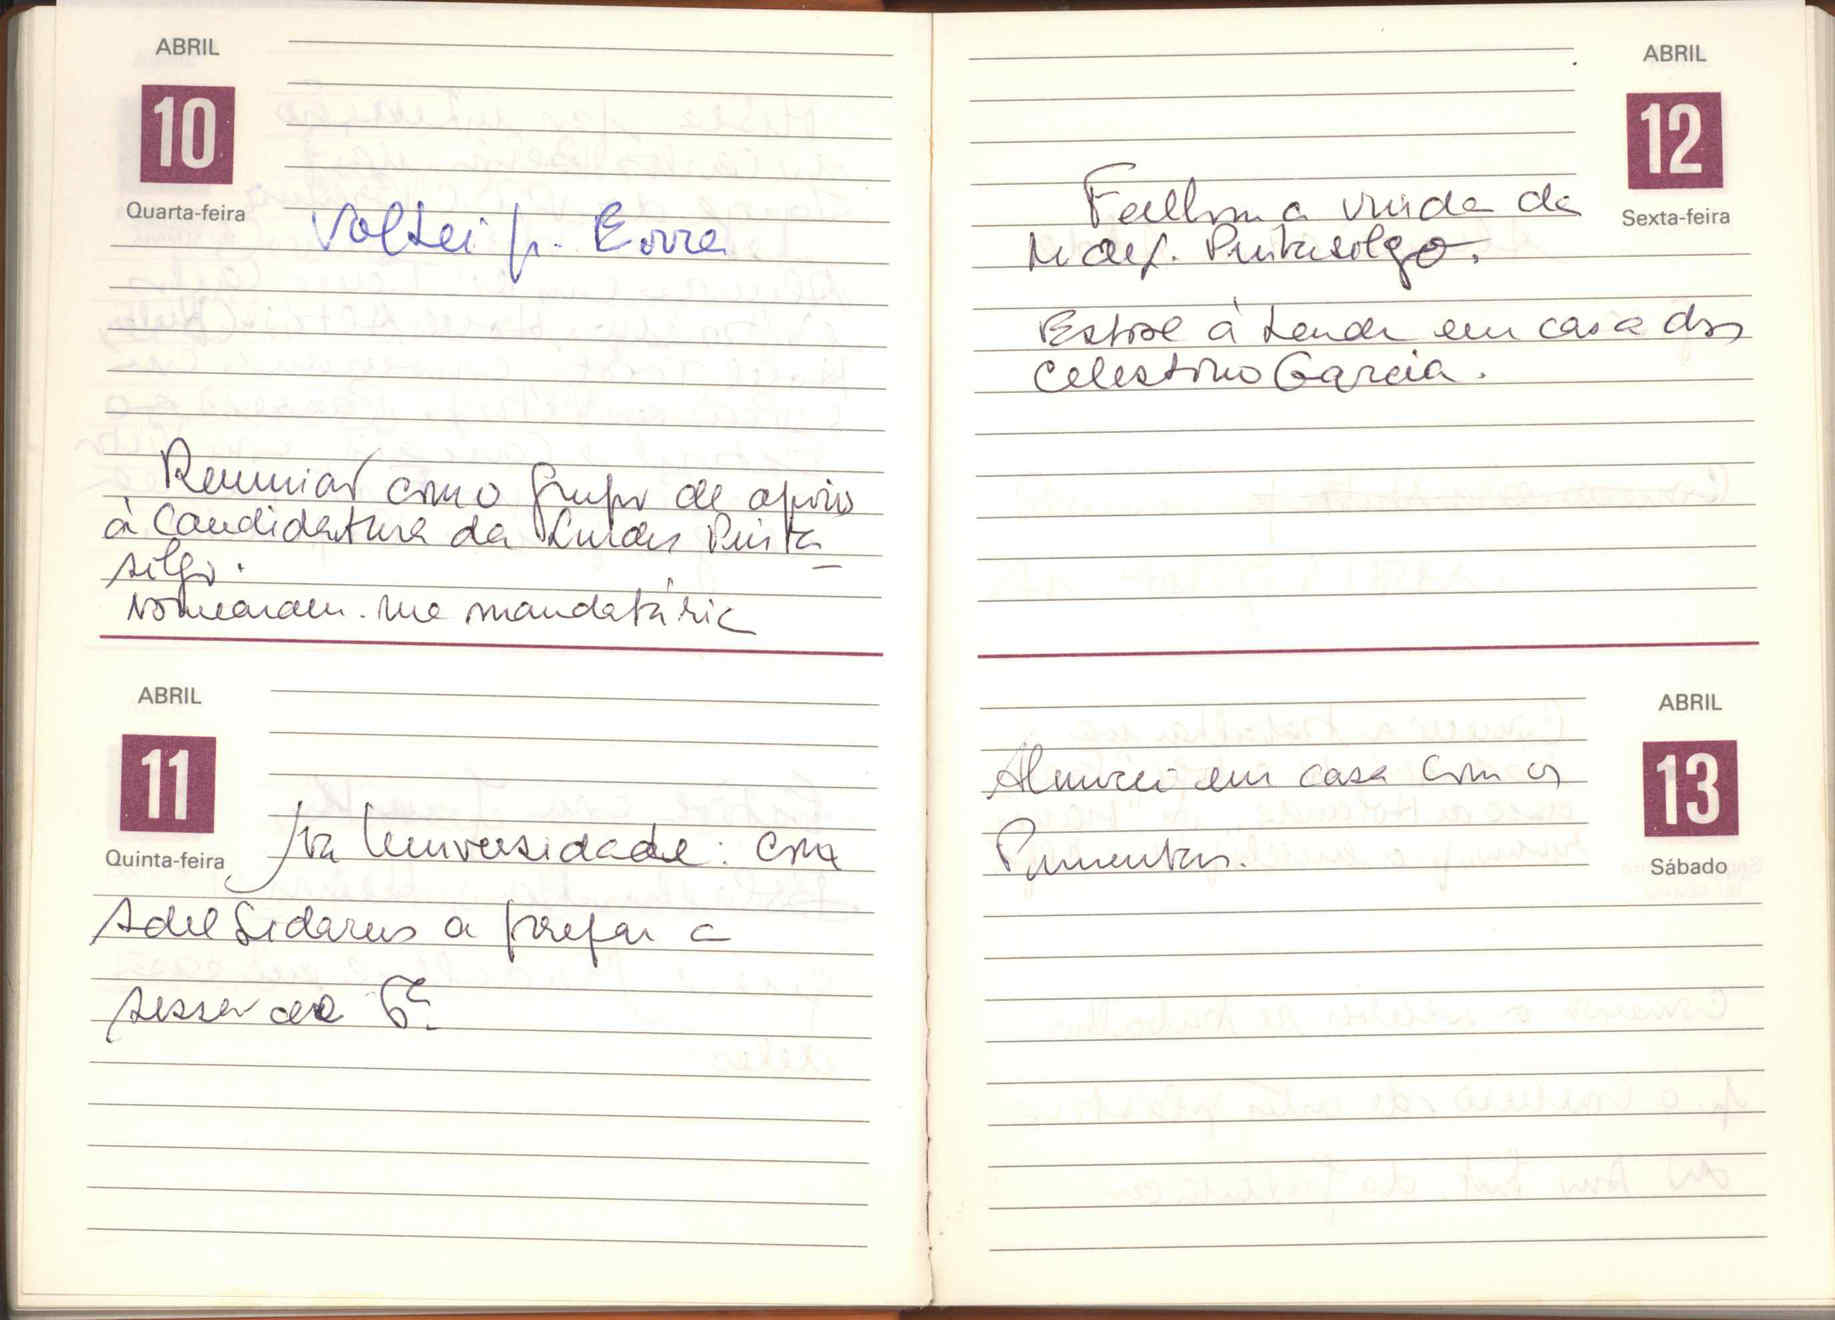 ABRIL
10
Quarta-feira
Voltei p. Évora
Reunião com o grupo de apoio
à candidatura da Lurdes Pinta_
silgo.
Nomearam-me mandatária
ABRIL
11
Quinta-feira
Na Universidade: com
Adel Sidarus a prepar a
sessão de 6ª.
ABRIL
12
Sexta-feira
Falhou a vinda da
Pintasilgo.
Estive à tarde em casa dos
Celestino Garcia.
ABRIL
13
Sábado
Almocei em casa com os
Pimentas.